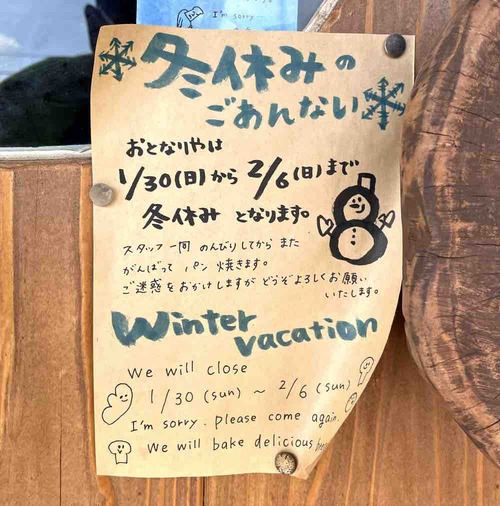 I'm sorry...
冬休みの
ごあんない
おとなりやは
1/30(日)から 2/6(日)まで
冬休み となります。
スタッフ一同 のんびりしてから また
がんばって パン 焼きます。
ご迷惑をおかけしますが どうぞよろしくお願い
いたします。
Winter
vacation
We will close
1/30 (sun) ~ 2/6 (sun)
I'm sorry. please come again.
We will bake delicious